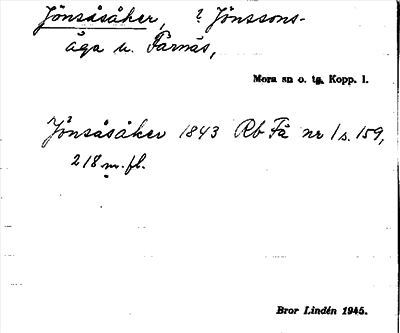 Jönsåsåker, ? Jönssons-
åga u. Färnäs,
Mora sn o. tg, Kopp. l.
Jönsåsåker 1843 Rb Få nr 1 s. 159,
218 m. fl.
Bror Lindén 1945.